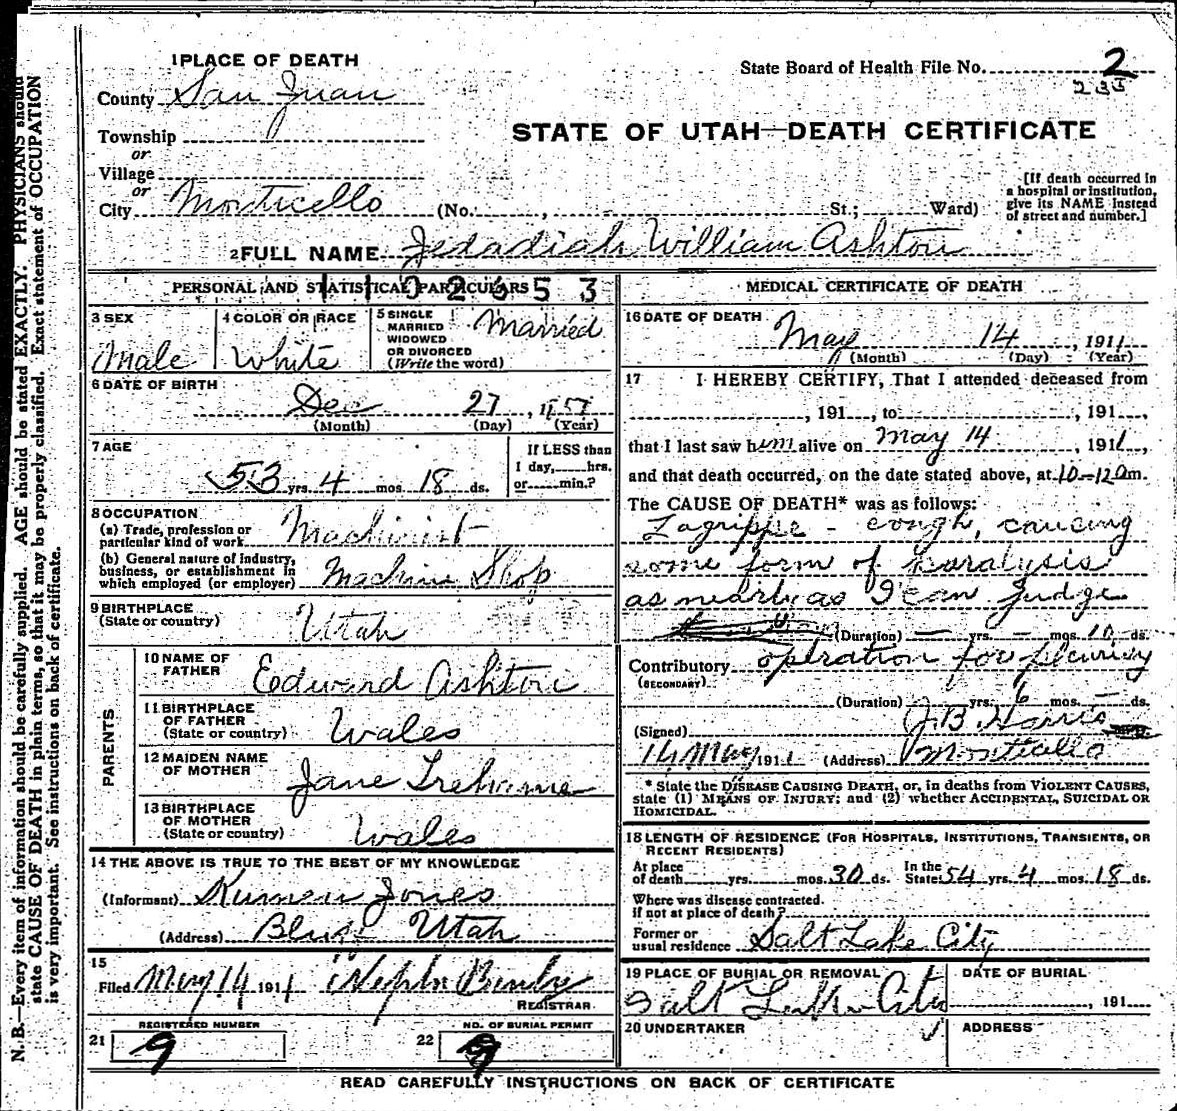 1 PLACE OF DEATH
County San Juan
State Board of Health File No. 2
235
Township
or
STATE OF UTAH—DEATH CERTIFICATE
Village
or
City Monticello (No. , St.; Ward)
[If death occurred in
a hospital or institution,
give its NAME instead
of street and number.]
2 FULL NAME Jedadiah William Ashton
PERSONAL AND STATISTICAL PARTICULARS
3 SEX
Male
4 COLOR OR RACE
White
5 SINGLE
MARRIED
WIDOWED
OR DIVORCED
(Write the word)
Married
6 DATE OF BIRTH
Dec 27, 1857
(Month) (Day) (Year)
7 AGE
53 yrs. 4 mos. 18 ds.
If LESS than
1 day, hrs.
or min.?
8 OCCUPATION
(a) Trade, profession or
particular kind of work Machinist
(b) General nature of industry,
business, or establishment in
which employed (or employer) Machine Shop
9 BIRTHPLACE
(State or country) Utah
PARENTS
10 NAME OF
FATHER Edward Ashton
11 BIRTHPLACE
OF FATHER
(State or country) Wales
12 MAIDEN NAME
OF MOTHER Jane Treharne
13 BIRTHPLACE
OF MOTHER
(State or country) Wales
14 THE ABOVE IS TRUE TO THE BEST OF MY KNOWLEDGE
(Informant) Kumen Jones
(Address) Bluff Utah
15
Filed May 14 1911
REGISTRAR
REGISTERED NUMBER
21 9
NO. OF BURIAL PERMIT
22 9
MEDICAL CERTIFICATE OF DEATH
16 DATE OF DEATH
May 14, 1911
(Month) (Day) (Year)
17 I HEREBY CERTIFY, That I attended deceased from
, 191 , to , 191 ,
that I last saw him alive on May 14 1911,
and that death occurred, on the date stated above, at 10-12am.
The CAUSE OF DEATH* was as follows:
Lagrippe - cough, causing
some form of paralysis
as nearly as I can Judge
(Duration) — yrs. — mos. 10 ds.
Contributory operation for pleurisy
(SECONDARY)
(Duration) yrs. 6 mos. — ds.
(Signed) J. B. Harris
14 May 1911 (Address) Monticello
* State the DISEASE CAUSING DEATH, or, in deaths from VIOLENT CAUSES,
state (1) MEANS OF INJURY; and (2) whether ACCIDENTAL, SUICIDAL OR
HOMICIDAL.
18 LENGTH OF RESIDENCE (FOR HOSPITALS, INSTITUTIONS, TRANSIENTS, OR
RECENT RESIDENTS)
At place
of death yrs. mos. 30 ds.
In the
State 54 yrs. 4 mos. 18 ds.
Where was disease contracted.
if not at place of death?
Former or
usual residence Salt Lake City
19 PLACE OF BURIAL OR REMOVAL
Salt Lake City
DATE OF BURIAL
, 191
20 UNDERTAKER
ADDRESS
READ CAREFULLY INSTRUCTIONS ON BACK OF CERTIFICATE
N. B.—Every item of information should be carefully supplied. AGE should be stated EXACTLY. PHYSICIANS should
state CAUSE OF DEATH in plain terms, so that it may be properly classified. Exact statement of OCCUPATION
is very important. See instructions on back of certificate.